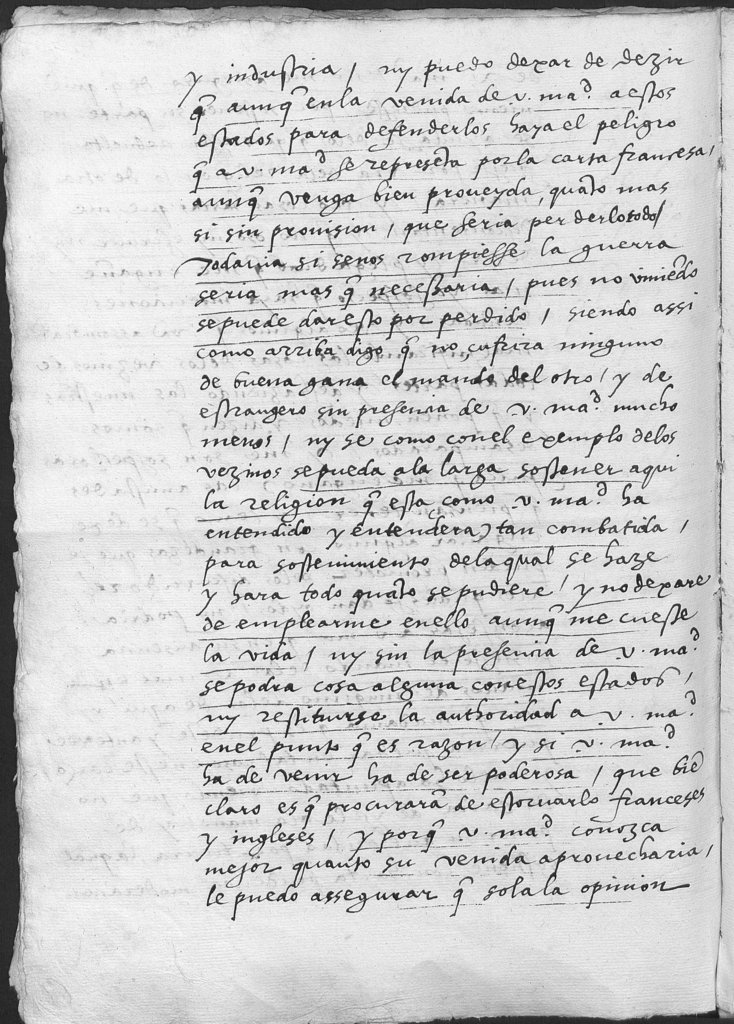 y industria / ny puedo dexar de dezir
q̃ aunq̃ en la venida de v. mad. a estos
estados para defenderlos haya el peligro
q̃ a v. mad. se represẽta por la carta francesa,
aunq̃ venga bien proueyda, quãto mas
si sin prouision / que seria perderlo todo /
Todauia si se nos rompiesse la guerra
seria mas q̃ necessaria / pues no viniẽdo
se puede dar esto por perdido / siendo assi
como arriba digo q̃ no çufrira ninguno
de buena gana el mando del otro / y de
estrangero sin presencia de v. mad. mucho
menos / ny se como con el exemplo delos
vezinos se pueda a la larga sostener aqui
la religion q̃ esta como v. mad. ha
entendido y entendera) tan combatida /
para sostenimiento dela qual se haze
y hara todo quãto se pudiere / y no dexare
de emplearme en ello aunq̃ me cueste
la vida / ny sin la presencia de v. mad.
se podra cosa alguna con estos estados /
ny restituirse la authoridad a v. mad.
en el punto q̃ es razon / y si v. mad.
ha de venir ha de ser poderosa / que biẽ
claro es q̃ procurarã de estoruarlo franceses
y ingleses / y porq̃ v. mad. conozca
mejor quanto su venida aprouecharia /
le puedo assegurar q̃ sola la opinion